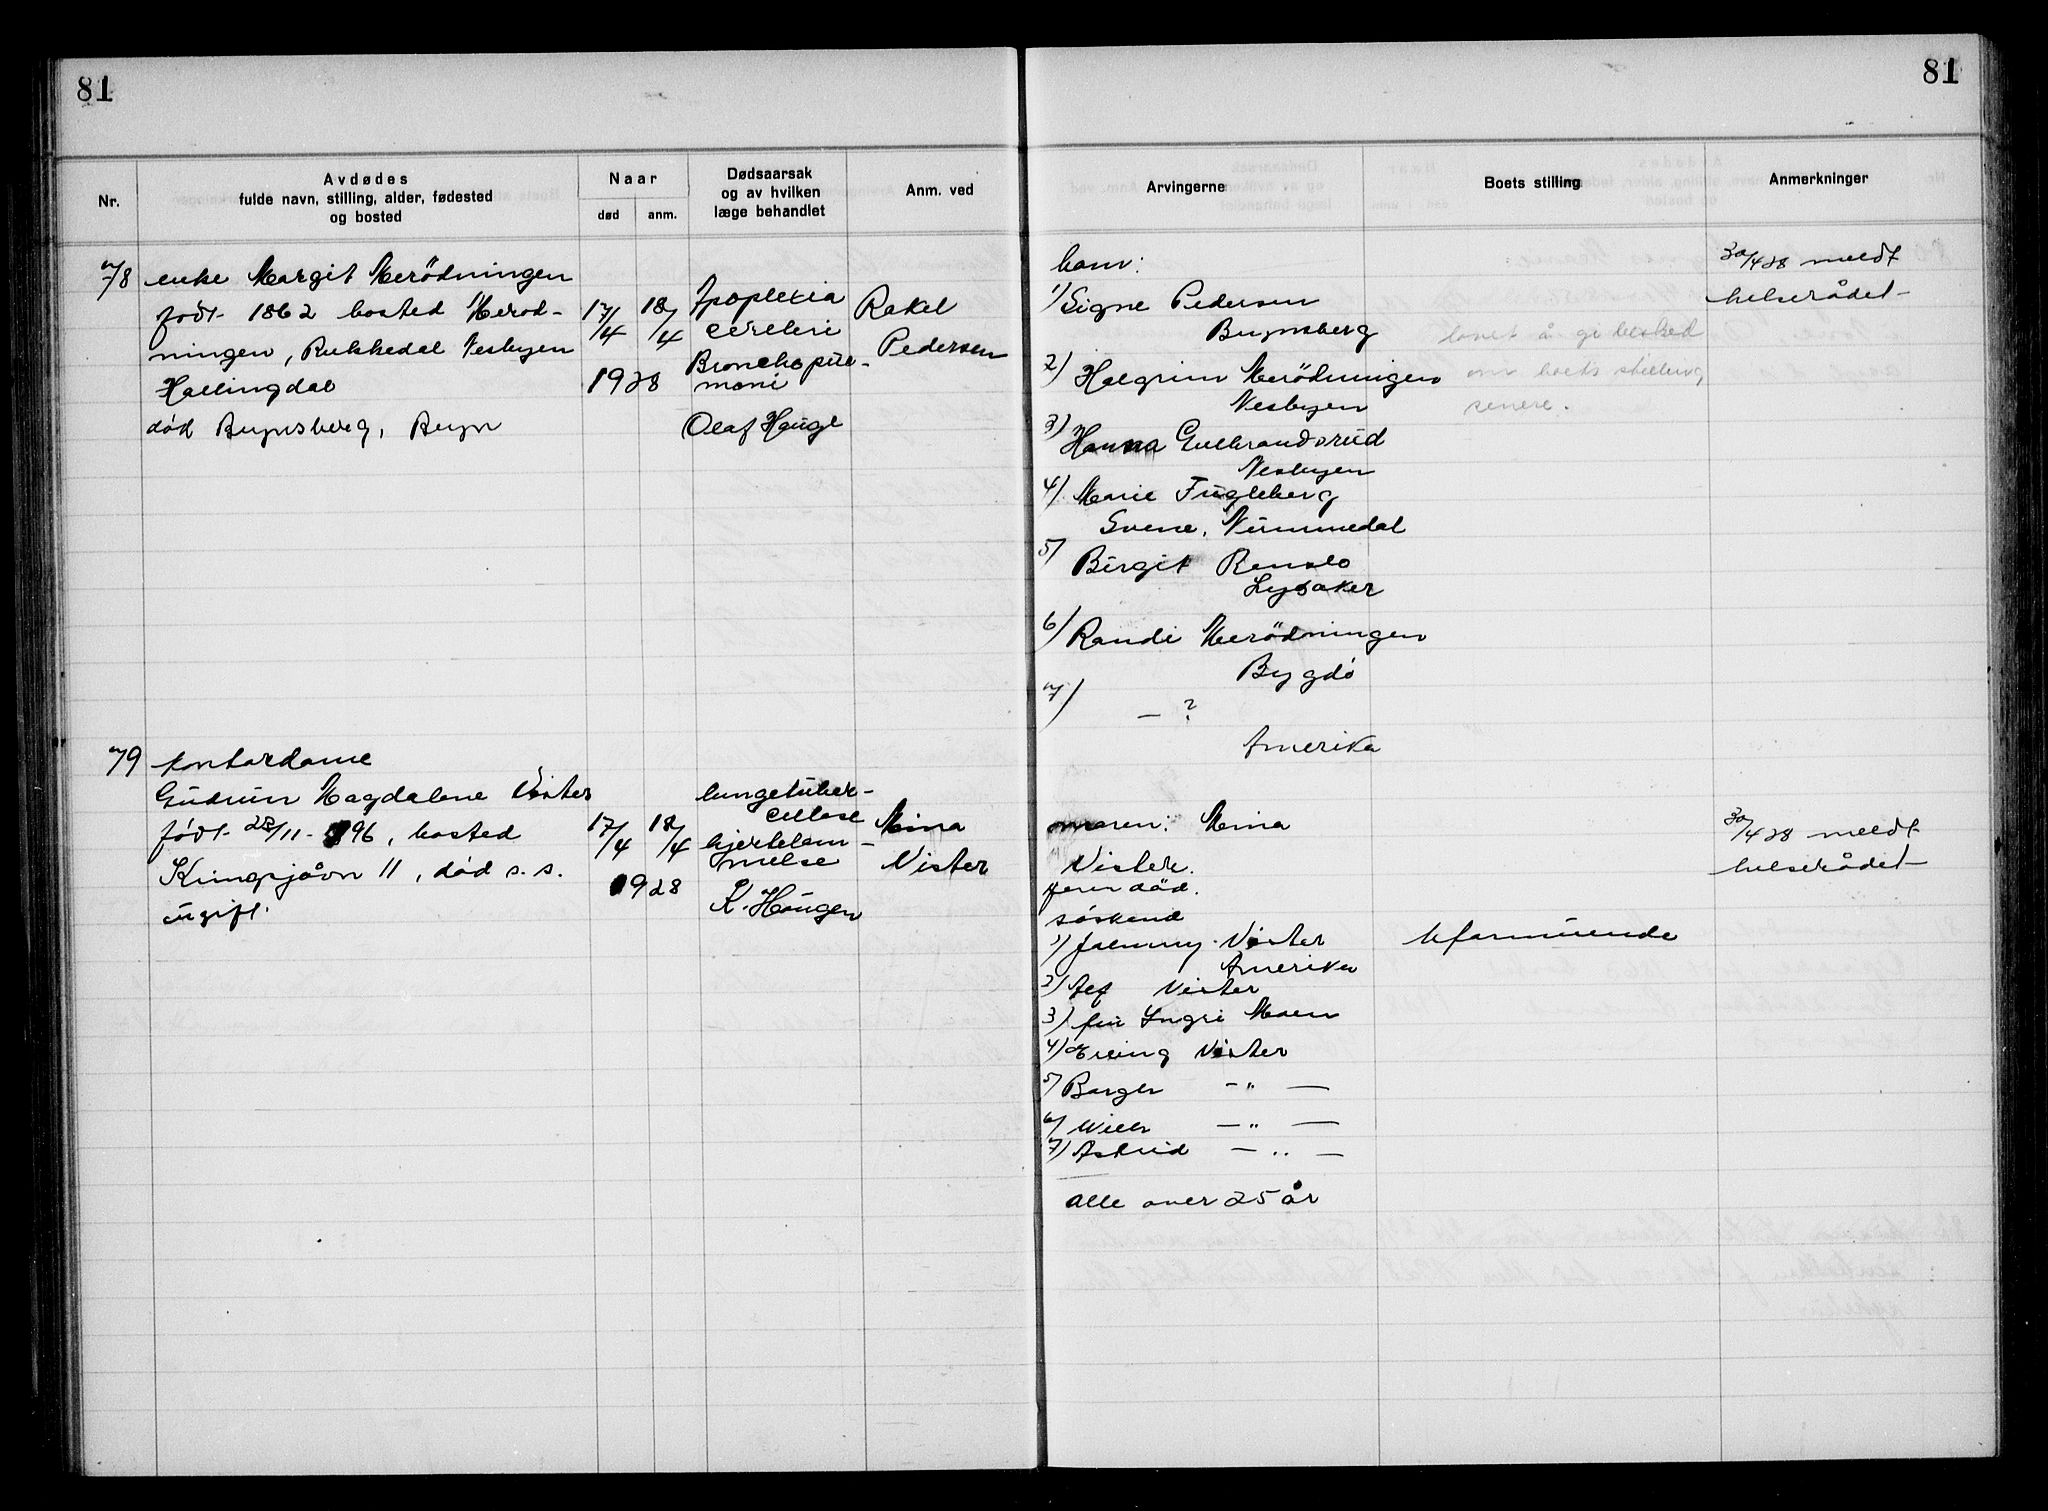 81
81
Nr.
Avdødes
fulde navn, stilling, alder, fødested
og bosted
Naar
død
anm.
Dødsaarsak
og av hvilken
læge behandlet
Anm. ved
Arvingerne
Boets stilling
Anmerkninger
78
enke Margit Merödningen
født 1862 bosted Meröd-
ningen, Rukkedal Nesbyen
Hallingdal
død Brynsberg, Bryn
17/4 18/4
1928
Apoplexia
cerebri
Bronchopneu-
moni
Olaf Hauge
Rakel
Pedersen
barn:
1) Signe Pedersen
Brynsberg
2) Halgrim Merödningen
Nesbyen
3) Hanna Gulbrandsrud
Nesbyen
4) Marie Fugleberg
Svene, Nummedal
5) Birgit Renslo
Lysaker
6) Randi Merödningen
Bygdö
7) — ?
Amerika
lovet å gi besked
om boets stilling
senere.
30/4 28 meldt
helserådet
79
kontordame
Gudrun Magdalene Vister
født 28/11-96, bosted
Kringsjåvn 11, död s. s.
ugift.
17/4 18/4
1928
lungetuber-
culose
hjertelam-
melse
K. Haugen
Mina
Vister
moren: Mina
Vister.
faren död.
söskend
1) Jalmmy Vister
Amerika
2) Alf Vister
3) fru Yngri Moen
4) Erling Vister
5) Borger —"—
6) Willy —"—
7) Astrid —"—
alle over 25 år
Uformuende
30/4 28 meldt
helserådet